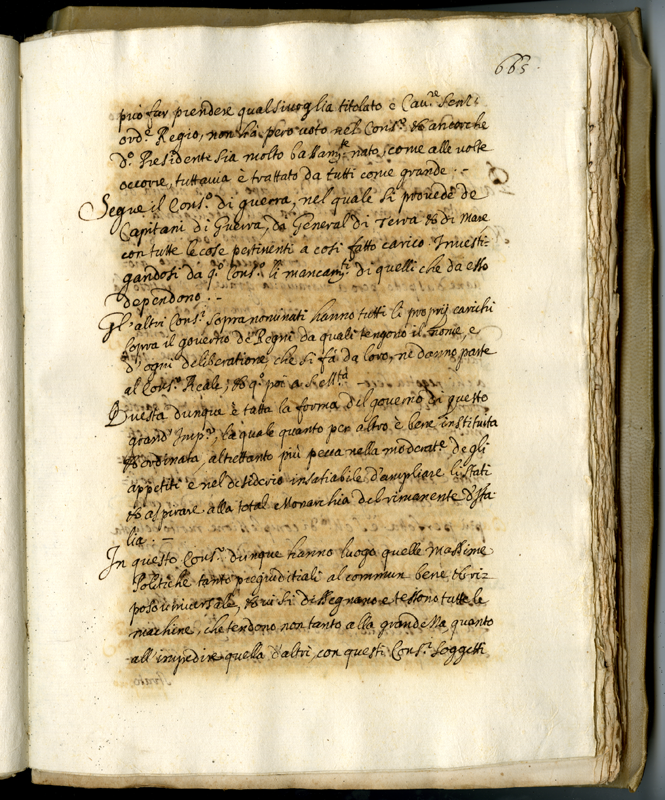 665
può far prendere qualsivoglia titolato e Cau.re senz:
ord.e Regio, non hà però voto nel Cons.o, et ancorche
d.o Presidente sia molto bassam.te nato, come alle volte
occorre, tuttauia è trattato da tutti come grande. -
Segue il Cons.o di guerra, nel quale si prouede de
Capitani di Guerra, da General di Terra et di mare
con tutte le cose pertinenti a così fatto carico. Inuesti-
gandosi da q.o Cons.o li mancam.ti di quelli che da esso
dependono. -
Gl'altri Cons.i sopranominati hanno tutti li proprij carichi
sopra il gouerno de Regni da quali tengono il nome, e
d'ogni deliberatione, che si fà da loro, ne danno parte
al Cons.o Reale, et q.o poi a S. M.tà -
Questa dunque è tutta la forma del gouerno di questo
grand' Imp.o, la quale quanto per altro è bene instituita
et ordinata, altrettanto più pecca nella moderat.e degli
appetiti e nel desiderio insatiabile d'ampliare li stati
et aspirare alla total Monarchia del rimanente d'Ita-
lia. -
In questo Cons.o dunque hanno luogo quelle Massime
Politiche tanto pregiuditiali al commun bene et ri-
poso uniuersale, et iui si disegnano e tessono tutte le
machine, che tendono non tanto alla grandezza quanto
all'impedire quella d'altri, con questi Cons.i soggetti